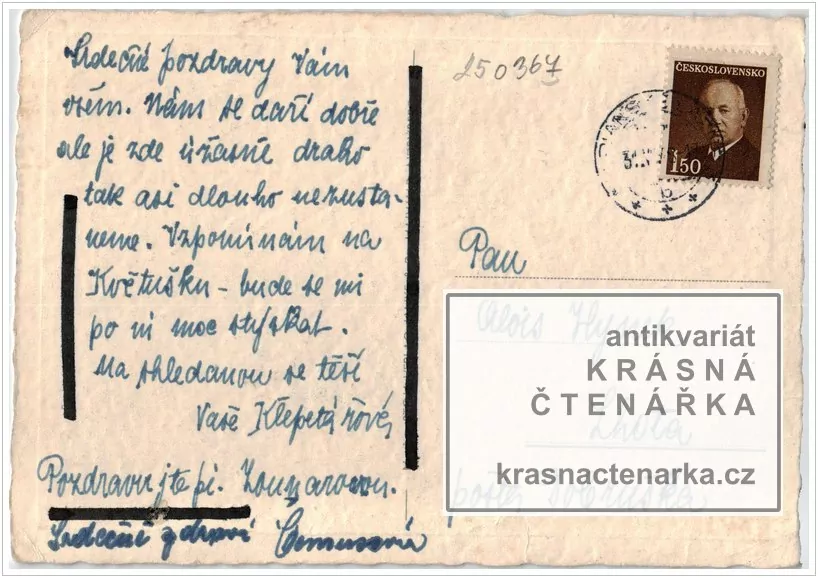 Srdečné pozdravy Vám
všem. Nám se daří dobře
ale je zde úžasně draho
tak asi dlouho nezusta-
neme. Vzpomínám na
Květušku - bude se mi
po ní moc stýskat.
Na shledanou se těší
Vaši Klepetářovi
Pozdravujte pí.
Srdečně zdraví
250367
ČESKOSLOVENSKO
1.50
Pan
Alois
Lhota
pošta
antikvariát
KRÁSNÁ
ČTENÁŘKA
krasnactenarka.cz